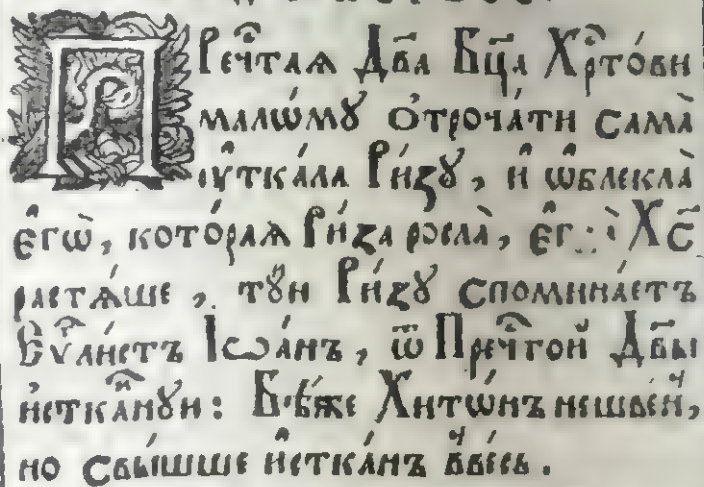 Преч҃тая Дв҃а Бц҃а Хрⷭ҇то́ви
малѡ́мꙋ ѻ҆троча́ти сама̀
ѹ҆тка́ла Ри́зꙋ, и҆ ѡ҆блекла̀
є҆гѡ̀, кото́рая Ри́за росла̀, Хс҃
растѧ́ше, тꙋ́ю Ри́зꙋ спомина́етъ
І҆ѡа́нъ, ѿ Преч҃той Дв҃ы
и҆стка́нꙋю: Бѣ́же Хитѡ́нъ нешве́нⷩ,
но свы́шше и҆стка́нъ